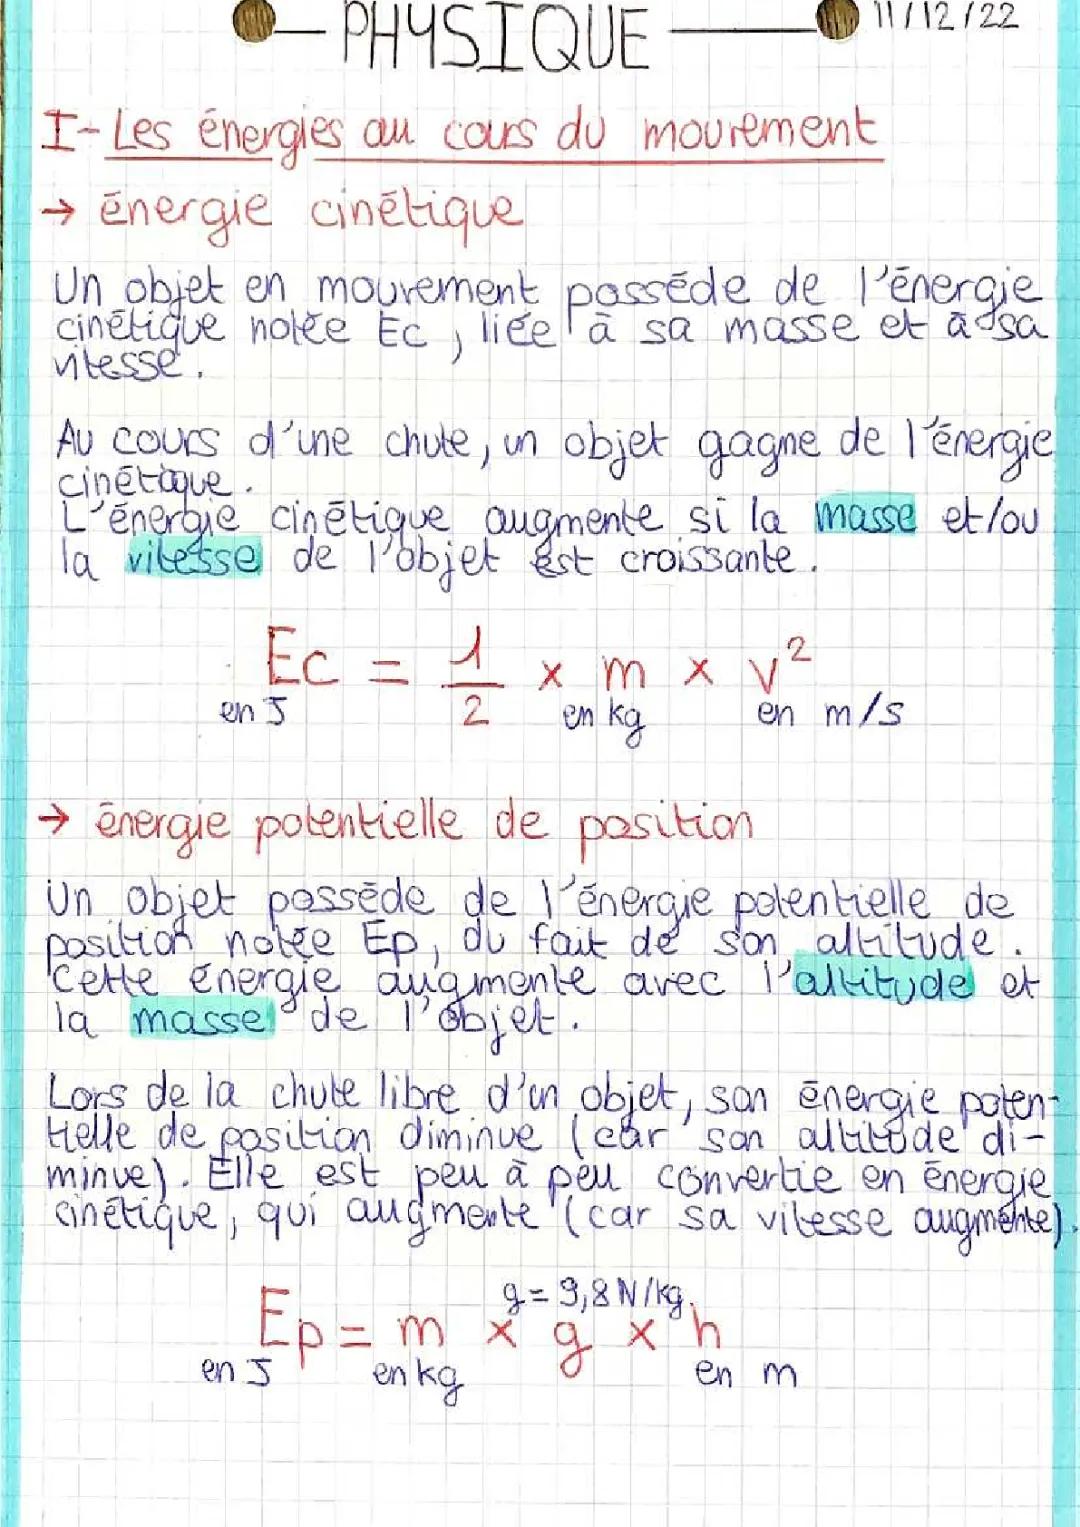 PHYSIQUE
11/12/22
I- Les énergies au cours du mouvement
→ énergie cinétique
Un objet en mouvement possède de l'énergie
cinétique notée Ec, liée à sa masse et à sa
vitesse.
Au cours d'une chute, un objet gagne de l'énergie
cinétique.
L'énergie cinétique augmente si la masse et/ou
la vitesse de l'objet est croissante.
Ec = 1/2 x m x v²
en J en kg en m/s
→ énergie potentielle de position
Un objet possède de l'énergie potentielle de
position notée Ep, du fait de son altitude.
Cette énergie augmente avec l'altitude et
la masse de l'objet.
Lors de la chute libre d'un objet, son énergie poten-
tielle de position diminue (car son altitude di-
minue). Elle est peu à peu convertie en énergie
cinétique, qui augmente (car sa vitesse augmente).
g = 9,8 N/kg
Ep = m x g x h
en J en kg en m